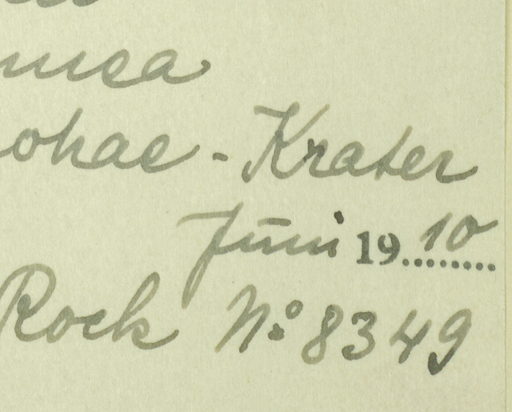 nuea
ohae - Krater
Juni 1910
Rock No 8349